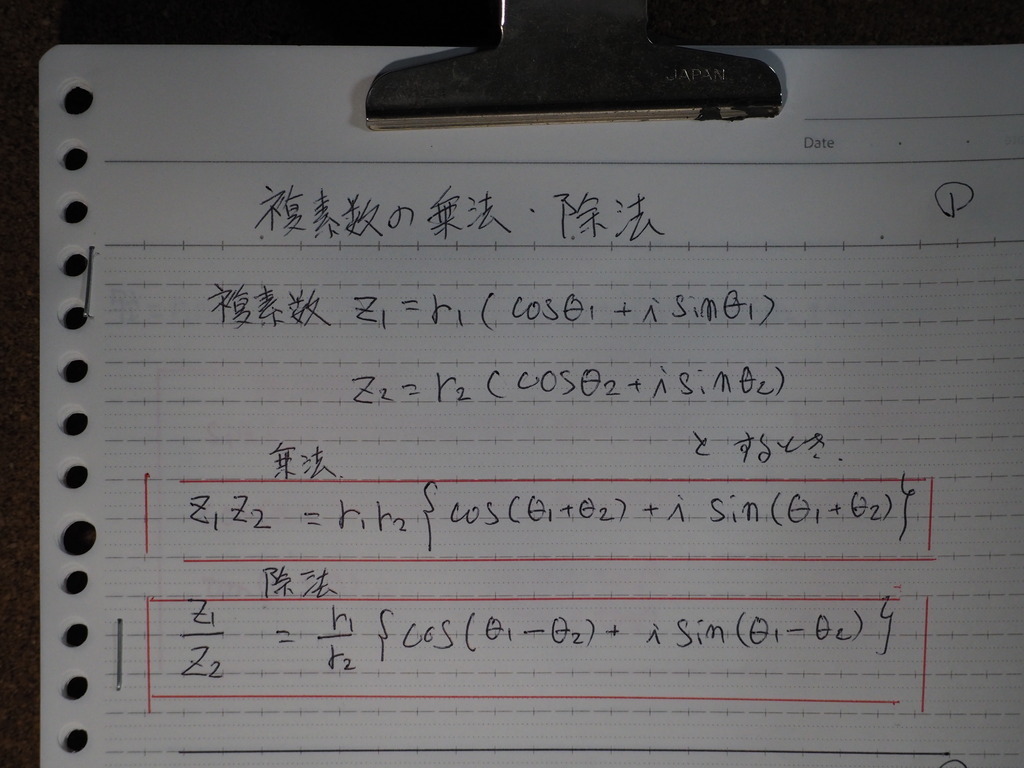 JAPAN
Date
複素数の乗法・除法 ①
複素数 z₁ = r₁ (cosθ₁ + i sinθ₁)
z₂ = r₂ (cosθ₂ + i sinθ₂)
とするとき.
乗法.
z₁z₂ = r₁r₂ {cos(θ₁+θ₂) + i sin(θ₁+θ₂)}
除法
z₁/z₂ = r₁/r₂ {cos(θ₁−θ₂) + i sin(θ₁−θ₂)}